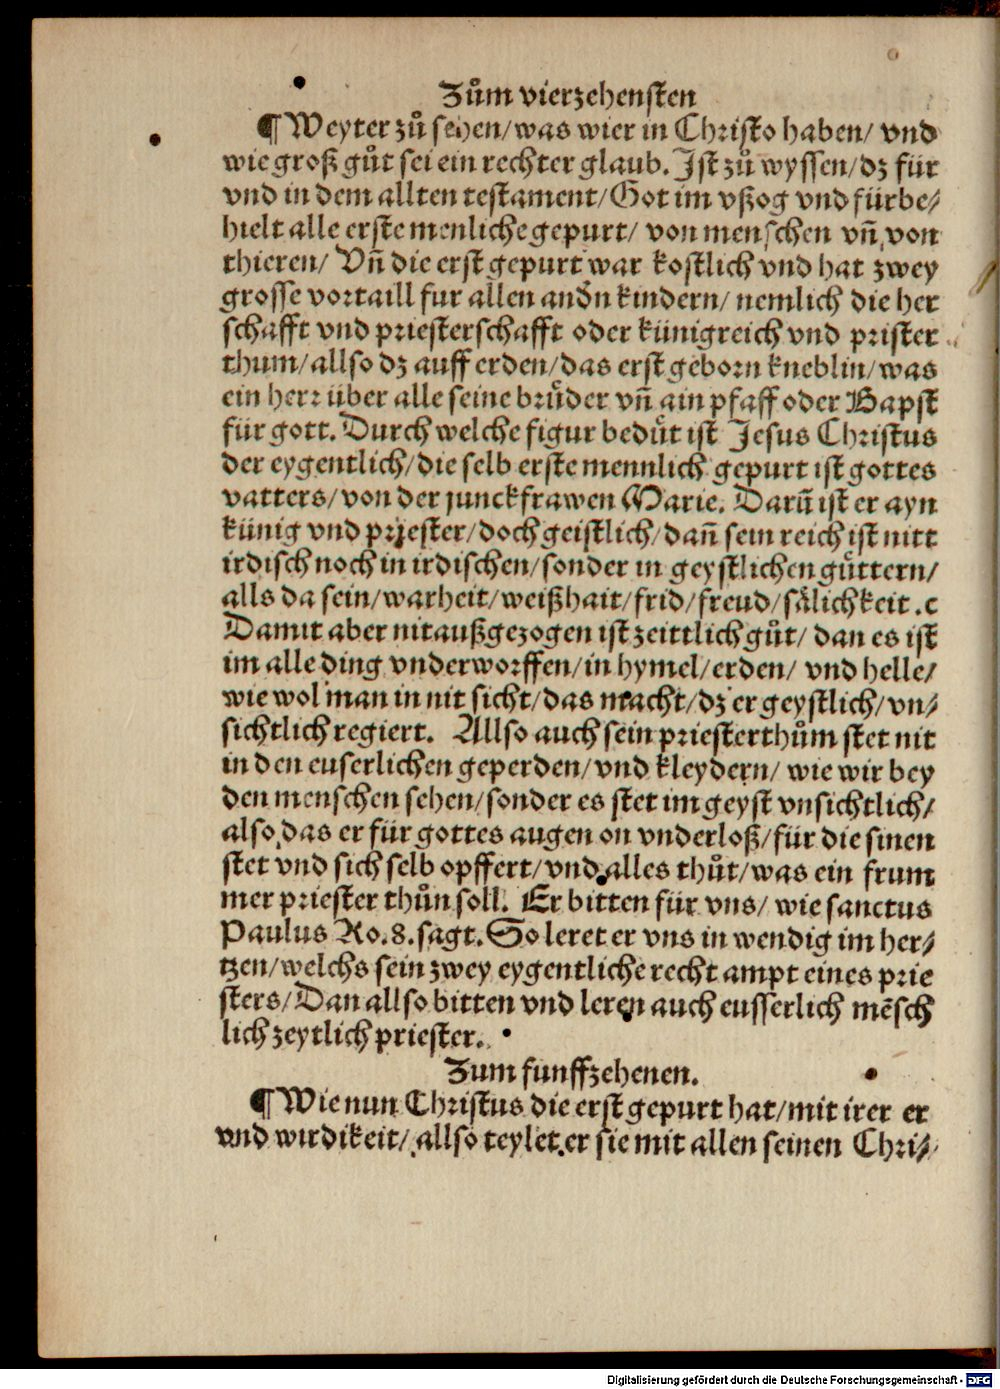 Zům vierzehensten
¶ Weyter zů sehen/was wier in Christo haben/ vnd
wie groß gůt sei ein rechter glaub. Jst zů wyssen/dz für
vnd in dem allten testament/Got im vßog vnd fürbe⸗
hielt alle erste menliche gepurt/ von menschen vñ von
thieren/ Vñ die erst gepurt war kostlich vnd hat zwey
grosse vortaill fur allen andn kindern/ nemlich die her
schafft vnd priesterschafft oder künigreich vnd prister
thum/allso dz auff erden/das erst geborn kneblin/was
ein herr über alle seine brůder vñ ain pfaff oder Bapst
für gott. Durch welche figur bedüt ist Jesus Christus
der eygentlich/die selb erste mennlich gepurt ist gottes
vatters/von der junckfrawen Marie. Darũ ist er ayn
künig vnd priester/doch geistlich/dañ sein reich ist nitt
irdisch noch in irdischen/sonder in geystlichen gůttern/
alls da sein/warheit/weißhait/frid/freud/sälichkeit .c
Damit aber nit außgezogen ist zeittlich gůt/ dan es ist
im alle ding vnderworffen/in hymel/erden/ vnd helle/
wie wol man in nit sicht/das macht/dz er geystlich/vn⸗
sichtlich regiert. Allso auch sein priesterthům stet nit
in den euserlichen geperden/vnd kleydern/ wie wir bey
den menschen sehen/sonder es stet im geyst vnsichtlich/
also das er für gottes augen on vnderloß/für die sinen
stet vnd sich selb opffert/vnd alles thůt/was ein frum
mer priester thůn soll. Er bitten für vns/ wie sanctus
Paulus Ro.8.sagt. So leret er vns in wendig im her⸗
tzen/welchs sein zwey eygentliche recht ampt eines prie
sters/Dan allso bitten vnd leren auch eusserlich mẽsch
lich zeytlich priester.
Zum funffzehenen.
¶ Wie nun Christus die erst gepurt hat/mit irer er
vnd wirdikeit/ allso teylet er sie mit allen seinen Chri⸗
Digitalisierung gefördert durch die Deutsche Forschungsgemeinschaft - DFG